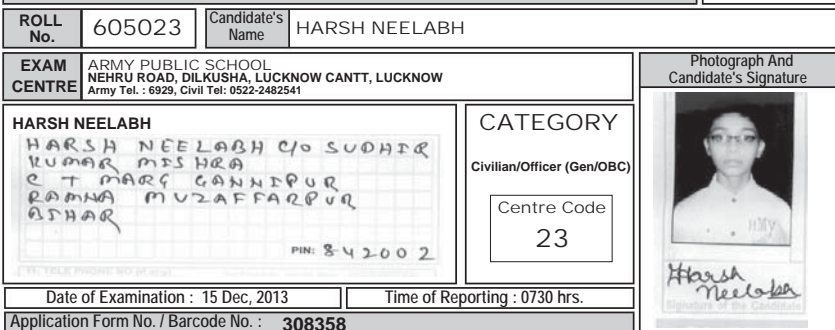 ROLL No. 605023 Candidate's Name HARSH NEELABH
EXAM CENTRE ARMY PUBLIC SCHOOL
NEHRU ROAD, DILKUSHA, LUCKNOW CANTT, LUCKNOW
Army Tel. : 6929, Civil Tel: 0522-2482541
Photograph And
Candidate's Signature
HARSH NEELABH
HARSH NEELABH C/O SUDHIR
KUMAR MISHRA
C T MARG GANNIPUR
RAMNA MUZAFFARPUR
BIHAR
PIN: 842002
CATEGORY
Civilian/Officer (Gen/OBC)
Centre Code
23
Harsh
Neelabh
Signature of the Candidate
Date of Examination : 15 Dec, 2013
Time of Reporting : 0730 hrs.
Application Form No. / Barcode No. : 308358